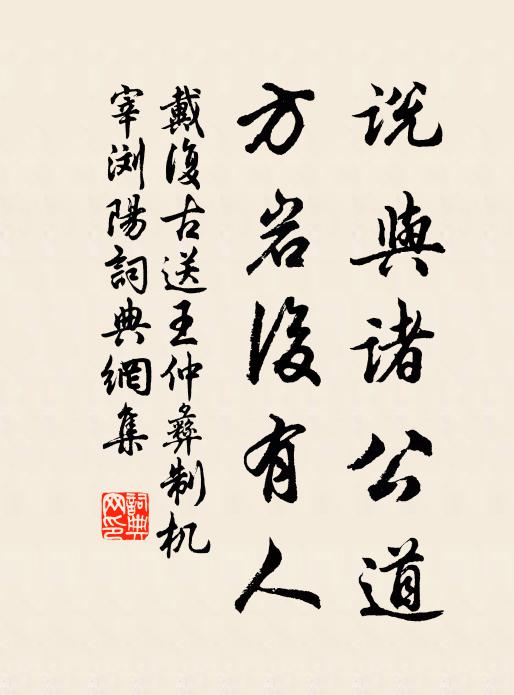 说與诸公道
方岩後有人
戴復古送王仲彝制机
宰浏陽詞典網集
詞典网印